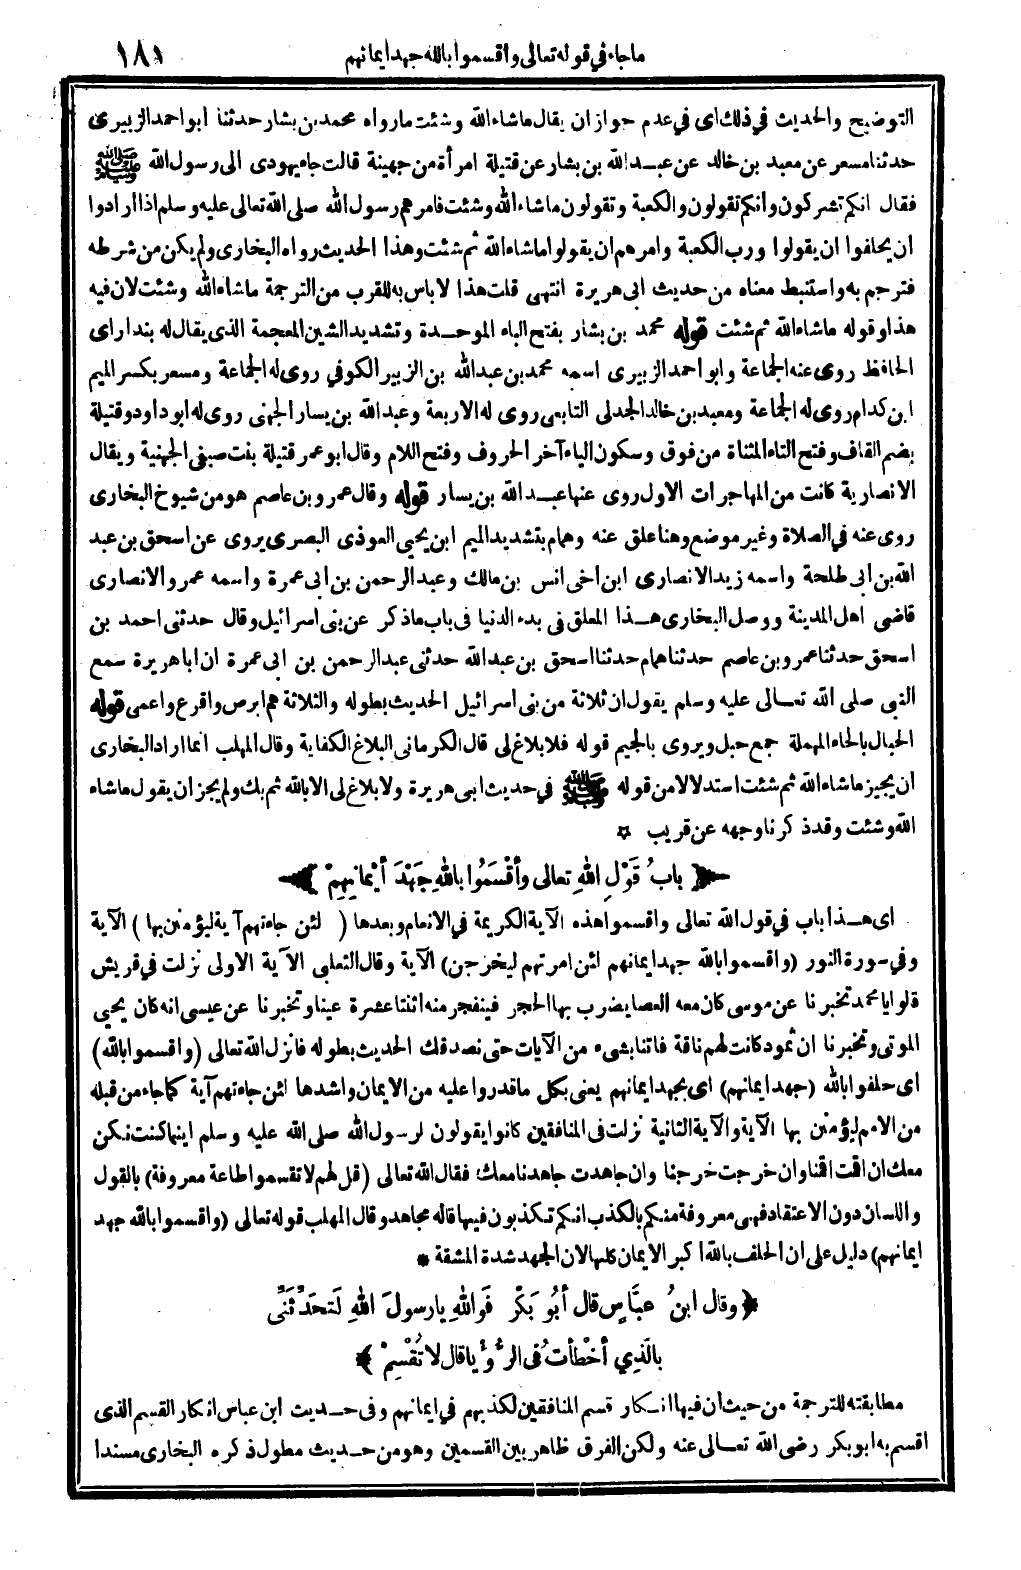 ما جاء في قوله تعالى واقسموا بالله جهد ايمانهم
١٨١
التوضيح والحديث في ذلك اى في عدم جواز ان يقال ماشاء الله وشئت مارواه محمد بن بشار حدثنا ابو احمد الزبيرى
حدثنا مسعر عن معبد بن خالد عن عبد الله بن بشار عن قتيلة امرأة من جهينة قالت جاء يهودى الى رسول الله ﷺ
فقال انكم تشركون وانكم تقولون والكعبة وتقولون ماشاء الله وشئت فامرهم رسول الله صلى الله تعالى عليه وسلم اذا ارادوا
ان يحلفوا ان يقولوا ورب الكعبة وامرهم ان يقولوا ماشاء الله ثم شئت وهذا الحديث رواه البخارى ولم يكن من شرطه
فترجم به واستنبط معناه من حديث ابى هريرة انتهى قلت هذا لاباس به للقرب من الترجمة ماشاء الله وشئت لان فيه
هذا وقوله ماشاء الله ثم شئت قوله محمد بن بشار بفتح الباء الموحدة وتشديد الشين المعجمة الذى يقال له بندار اى
الحافظ روى عنه الجماعة وابو احمد الزبيرى اسمه محمد بن عبد الله بن الزبير الكوفي روى له الجماعة ومسعر بكسر الميم
ابن كدام روى له الجماعة ومعبد بن خالد الجدلى التابعى روى له الاربعة وعبد الله بن يسار الجهنى روى له ابو داود وقتيلة
بضم القاف وفتح التاء المثناة من فوق وسكون الياء آخر الحروف وفتح اللام وقال ابو عمر قتيلة بنت صيفى الجهنية ويقال
الانصارية كانت من المهاجرات الاول روى عنها عبد الله بن يسار قوله وقال عمرو بن عاصم هو من شيوخ البخارى
روى عنه في الصلاة وغير موضع وهنا علق عنه وهمام بتشديد الميم ابن يحيى العوذى البصرى يروى عن اسحق بن عبد
الله بن ابى طلحة واسمه زيد الانصارى ابن اخى انس بن مالك وعبد الرحمن بن ابى عمرة واسمه عمرو الانصارى
قاضى اهل المدينة ووصل البخارى هذا المعلق في بدء الدنيا في باب ماذكر عن بنى اسرائيل وقال حدثنى احمد بن
اسحق حدثنا عمرو بن عاصم حدثنا همام حدثنا اسحق بن عبد الله حدثنى عبد الرحمن بن ابى عمرة ان اباهريرة سمع
النبى صلى الله تعالى عليه وسلم يقول ان ثلاثة من بنى اسرائيل الحديث بطوله والثلاثة هم ابرص واقرع واعمى قوله
الحبال بالحاء المهملة جمع حبل ويروى بالجيم قوله فلابلاغ لى قال الكرمانى البلاغ الكفاية وقال المهلب انما اراد البخارى
ان يجيز ماشاء الله ثم شئت استدلالا من قوله ﷺ في حديث ابى هريرة ولا بلاغ لى الا بالله ثم بك ولم يجز ان يقول ماشاء
الله وشئت وقد ذكرنا وجهه عن قريب ✡
﴿ بابُ قَوْلِ اللهِ تعالى وأقْسَمُوا باللهِ جَهْدَ أيْمانِهِمْ ﴾
اى هذا باب في قول الله تعالى واقسموا هذه الآية الكريمة في الانعام وبعدها ( لئن جاءتهم آية ليؤمنن بها ) الآية
وفي سورة النور (واقسموا بالله جهد ايمانهم لئن امرتهم ليخرجن) الآية وقال الثعلبى الآية الاولى نزلت في قريش
قلوا يا محمد تخبرنا عن موسى كان معه العصا يضرب بها الحجر فينفجر منه اثنتا عشرة عينا وتخبرنا عن عيسى انه كان يحيى
الموتى وتخبرنا ان ثمود كانت لهم ناقة فاتنا بشىء من الآيات حتى نصدقك الحديث بطوله فانزل الله تعالى (واقسموا بالله)
اى حلفوا بالله (جهد ايمانهم) اى بجهد ايمانهم يعنى بكل ماقدروا عليه من الايمان واشدها لئن جاءتهم آية كما جاء من قبله
من الامم ليؤمنن بها الآية والآية الثانية نزلت في المنافقين كانوا يقولون لرسول الله صلى الله عليه وسلم اينما كنت نكن
معك ان اقمت اقمنا وان خرجت خرجنا وان جاهدت جاهدنا معك فقال الله تعالى (قل لهم لاتقسموا طاعة معروفة) بالقول
واللسان دون الاعتقاد فهى معروفة منكم بالكذب انكم تكذبون فيها قاله مجاهد وقال المهلب قوله تعالى (واقسموا بالله جهد
ايمانهم) دليل على ان الحلف بالله اكبر الايمان كلها لان الجهد شدة المشقة *
﴿ وقال ابنُ عبَّاسٍ قال أبُو بَكْرٍ فَواللهِ يا رسولَ اللهِ لَتُحَدِّثَنِّى
بالَّذِي أخْطَأتُ في الرُّؤْيا قال لا تُقْسِمْ ﴾
مطابقته للترجمة من حيث ان فيها انكار قسم المنافقين لكذبهم في ايمانهم وفى حديث ابن عباس انكار القسم الذى
اقسم به ابو بكر رضى الله تعالى عنه ولكن الفرق ظاهر بين القسمين وهو من حديث مطول ذكره البخارى مسندا